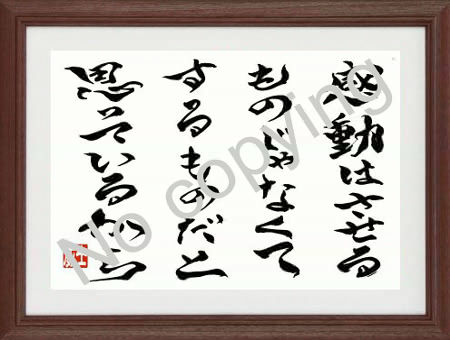 感動はさせる
ものじゃなくて
するものだと
思っているから
No copying